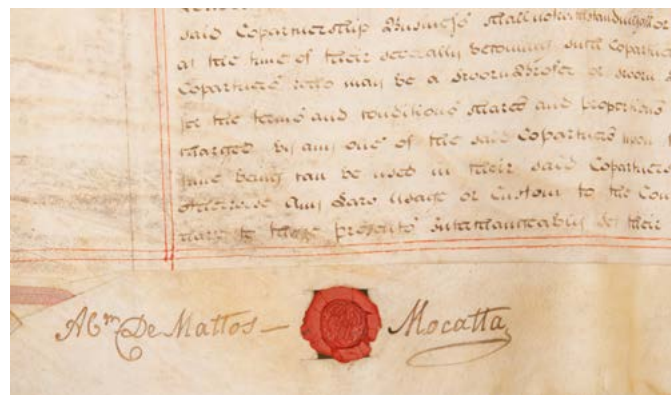 said Copartnership Business shall notwithstanding all or
at the time of their severally becoming such Copartn
Copartners who may be a sworn Broker or sworn
for the terms and conditions shares and proportions
charged by any one of the said Copartners upon
time being can be used in their said Copartners
otherwise Any Law usage or Custom to the Con
have to these presents interchangeably set their
Abm De Mattos — Mocatta